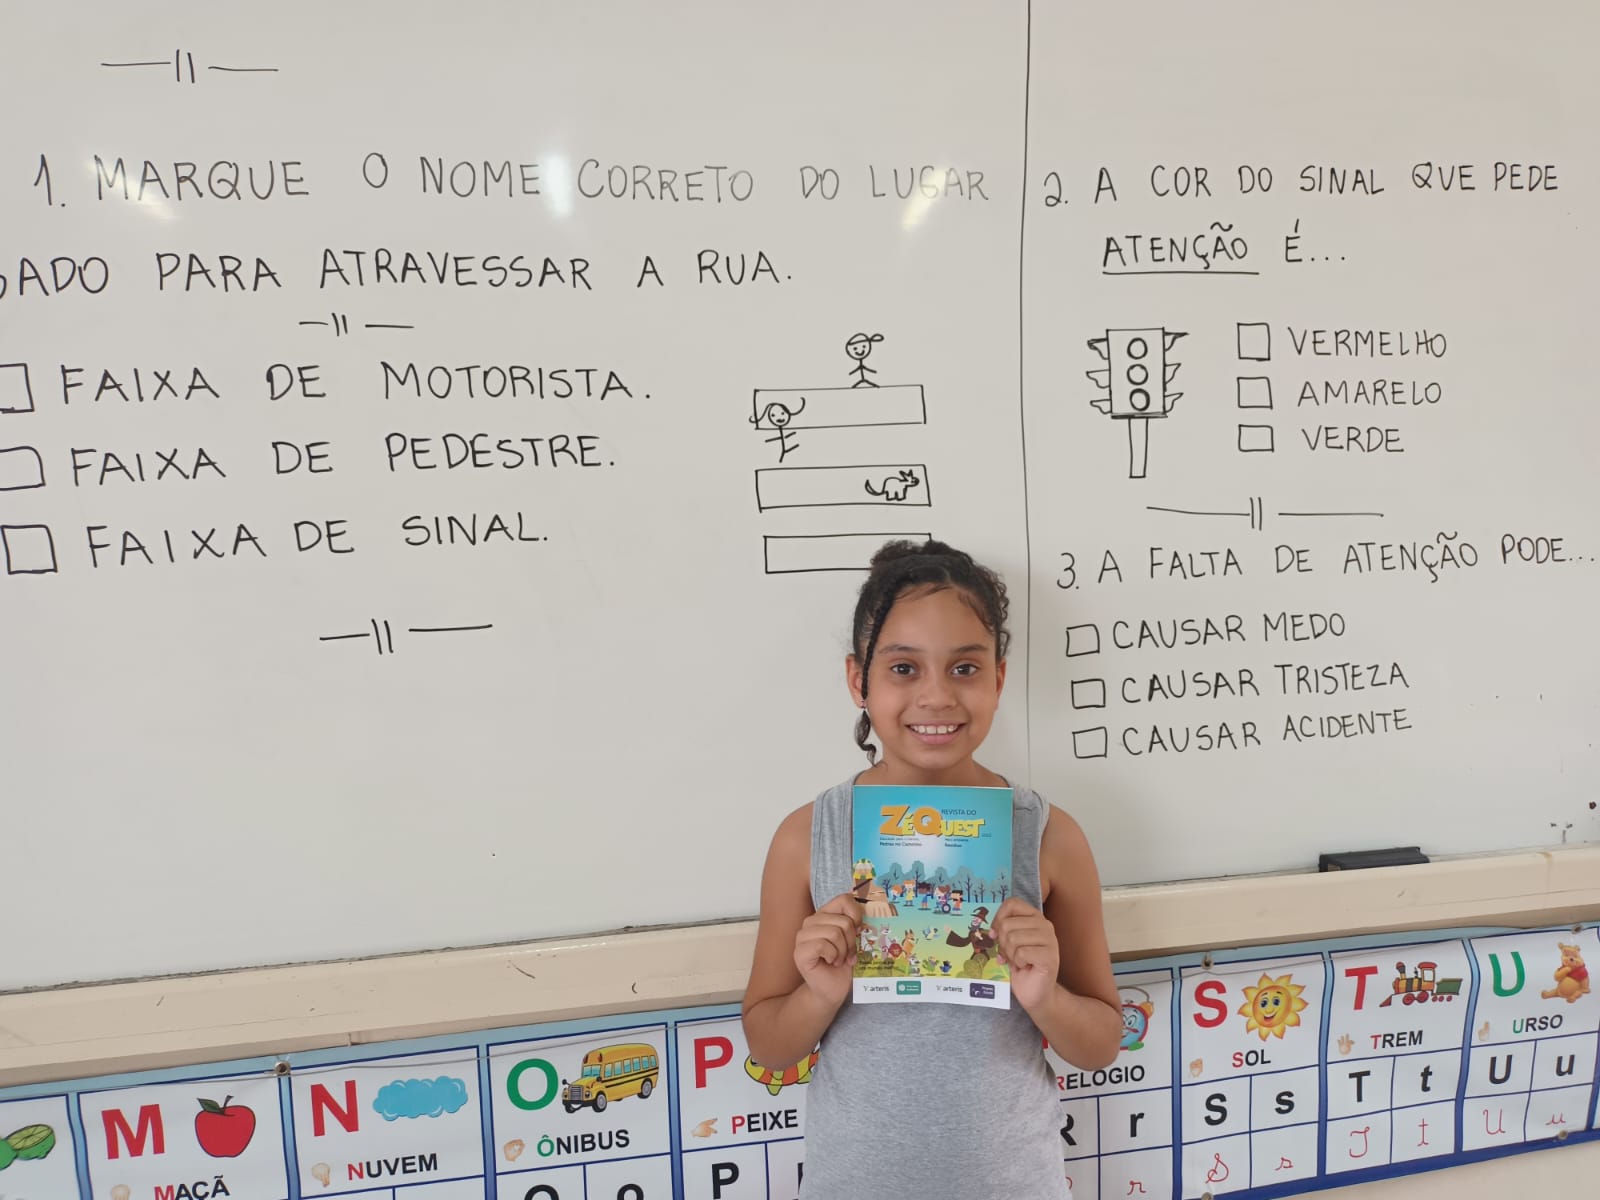 1. MARQUE O NOME CORRETO DO LUGAR
PARA ATRAVESSAR A RUA.
FAIXA DE MOTORISTA.
FAIXA DE PEDESTRE.
FAIXA DE SINAL.
2. A COR DO SINAL QUE PEDE
ATENÇÃO É...
VERMELHO
AMARELO
VERDE
3. A FALTA DE ATENÇÃO PODE...
CAUSAR MEDO
CAUSAR TRISTEZA
CAUSAR ACIDENTE
REVISTA DO
ZÉQUEST
Pedras no Caminho
Resíduo
arteris
arteris
M
MAÇÃ
N
NUVEM
O
ÔNIBUS
O o
P
PEIXE
P
RELOGIO
R r
r
S
SOL
S s
S s
T
TREM
T t
T t
U
URSO
U u
U u